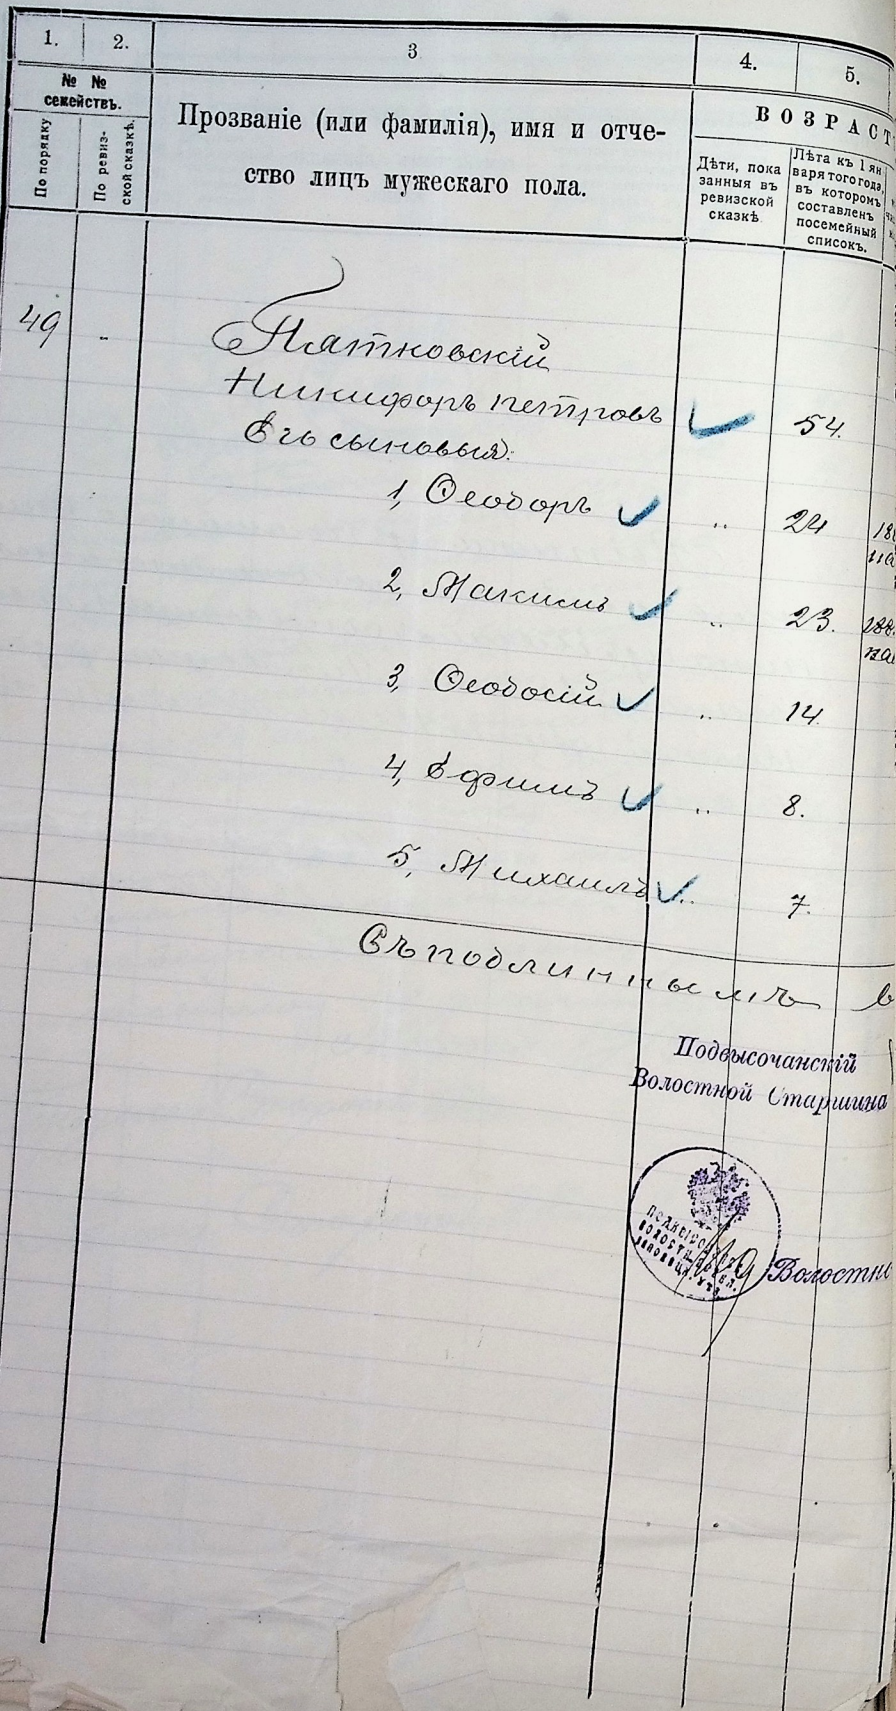 1. 2. 3 4. 5.
№ № семействъ.
По порядку
По ревизской сказкѣ.
Прозваніе (или фамилія), имя и отче-
ство лицъ мужескаго пола.
ВОЗРАСТ
Дѣти, пока
занныя въ
ревизской
сказкѣ
Лѣта къ 1 ян
варя того года,
въ которомъ
составленъ
посемейный
списокъ.
49 „ Пятковскій
Никифоръ Петровъ 54.
Его сыновья:
1, Ѳеодоръ „ 24
2, Максимъ „ 23. 188
3, Ѳеодосій „ 14.
4, Ефимъ „ 8.
5, Михаилъ „ 7.
Съ подлиннымъ в
Подвысочанскій
Волостной Старшина
Волостно